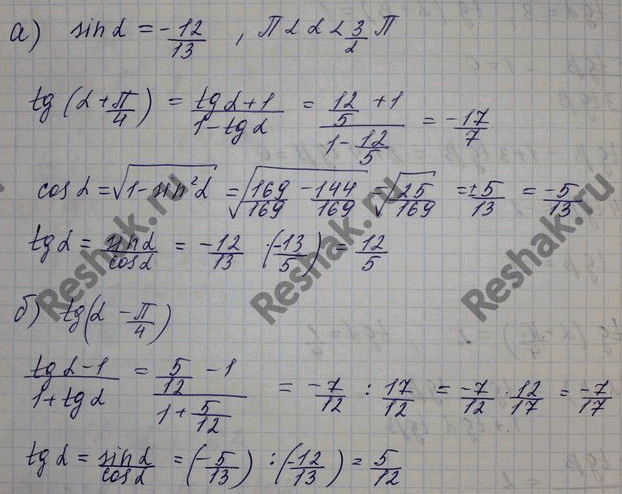 а) sin α = -12/13 , π < α < 3/2 π
tg (α + π/4) = (tg α + 1)/(1 - tg α) = (12/5 + 1)/(1 - 12/5) = -17/7
cos α = √(1 - sin² α) = √(169/169 - 144/169) = √(25/169) = ±5/13 = -5/13
tg α = sin α/cos α = -12/13 · (-13/5) = 12/5
б) tg(α - π/4)
(tg α - 1)/(1 + tg α) = (5/12 - 1)/(1 + 5/12) = -7/12 : 17/12 = -7/12 · 12/17 = -7/17
tg α = sin α/cos α = (-5/13) : (-12/13) = 5/12
Reshak.ru
Reshak.ru
Reshak.ru